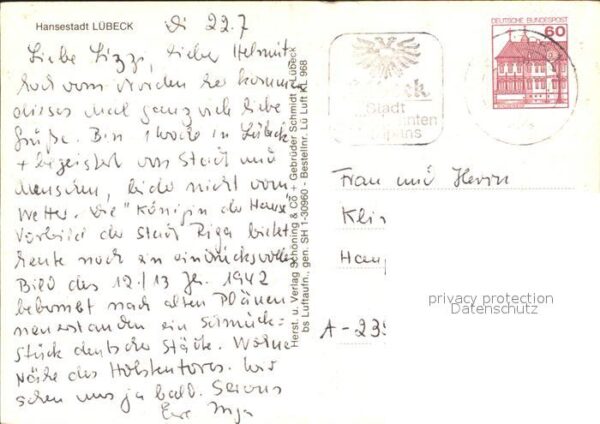 Hansestadt LÜBECK
Di 22.7
Liebe Lizzi, lieber Helmut
hoch vom Norden her kommen
dieses mal ganz viele liebe
Grüße. Bin 1 Woche in Lübeck
+ begeistert von Stadt und
Menschen, leider nicht vom
Wetter. Die "Königin der Hanse
Vorbild der Stadt Riga bietet
heute noch ein eindrucksvolles
Bild des 12./13 Jh. 1942
zerbombt nach alten Plänen
neuerstanden ein Schmuck-
stück deutscher Städte. Wohne
Nähe des Holstentores. Wir
sehen uns ja bald. Servus
Eure Inga
Herst. u. Verlag Schöning & Co + Gebrüder Schmidt, Lübeck
bs Luftaufn., gen. SH 1-30960 - Bestellnr. Lü Luft KL 968
Stadt
DEUTSCHE BUNDESPOST
60
Frau und Herrn
Kli
Hau
A-23
privacy protection
Datenschutz